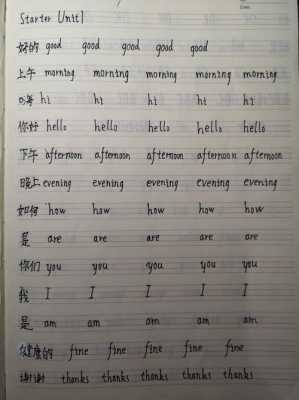 Starter Unit1
好的 good good good good good
上午 morning morning morning morning morning
嗨 hi hi hi hi hi
你好 hello hello hello hello hello
下午 afternoon afternoon afternoon afternoon afternoon
晚上 evening evening evening evening evening
如何 how how how how how
是 are are are are are
你们 you you you you you
我 I I I I I
是 am am am am am
健康的 fine fine fine fine fine
谢谢 thanks thanks thanks thanks thanks